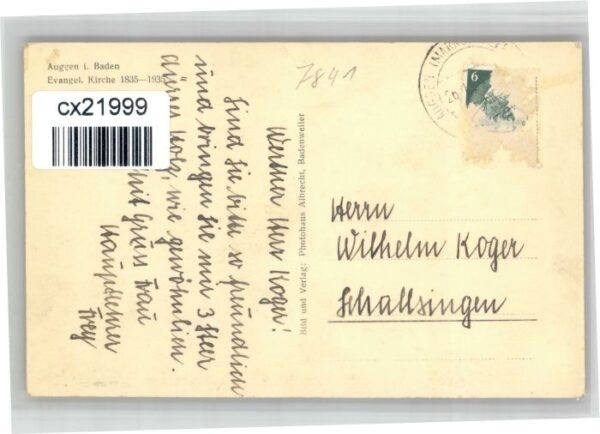 Auggen i. Baden
Evangel. Kirche 1835-1935
cx21999
7841
Werter Herr Koger!
Sind Sie bitte so freundlich
und bringen Sie mir 3 Ster
dürres Holz, wie gewöhnlich.
Mit Gruss Frau
Hauptlehrer
Frey
Bild und Verlag: Photohaus Albrecht, Badenweiler
AUGGEN
6
Herrn
Wilhelm Koger
Schallsingen